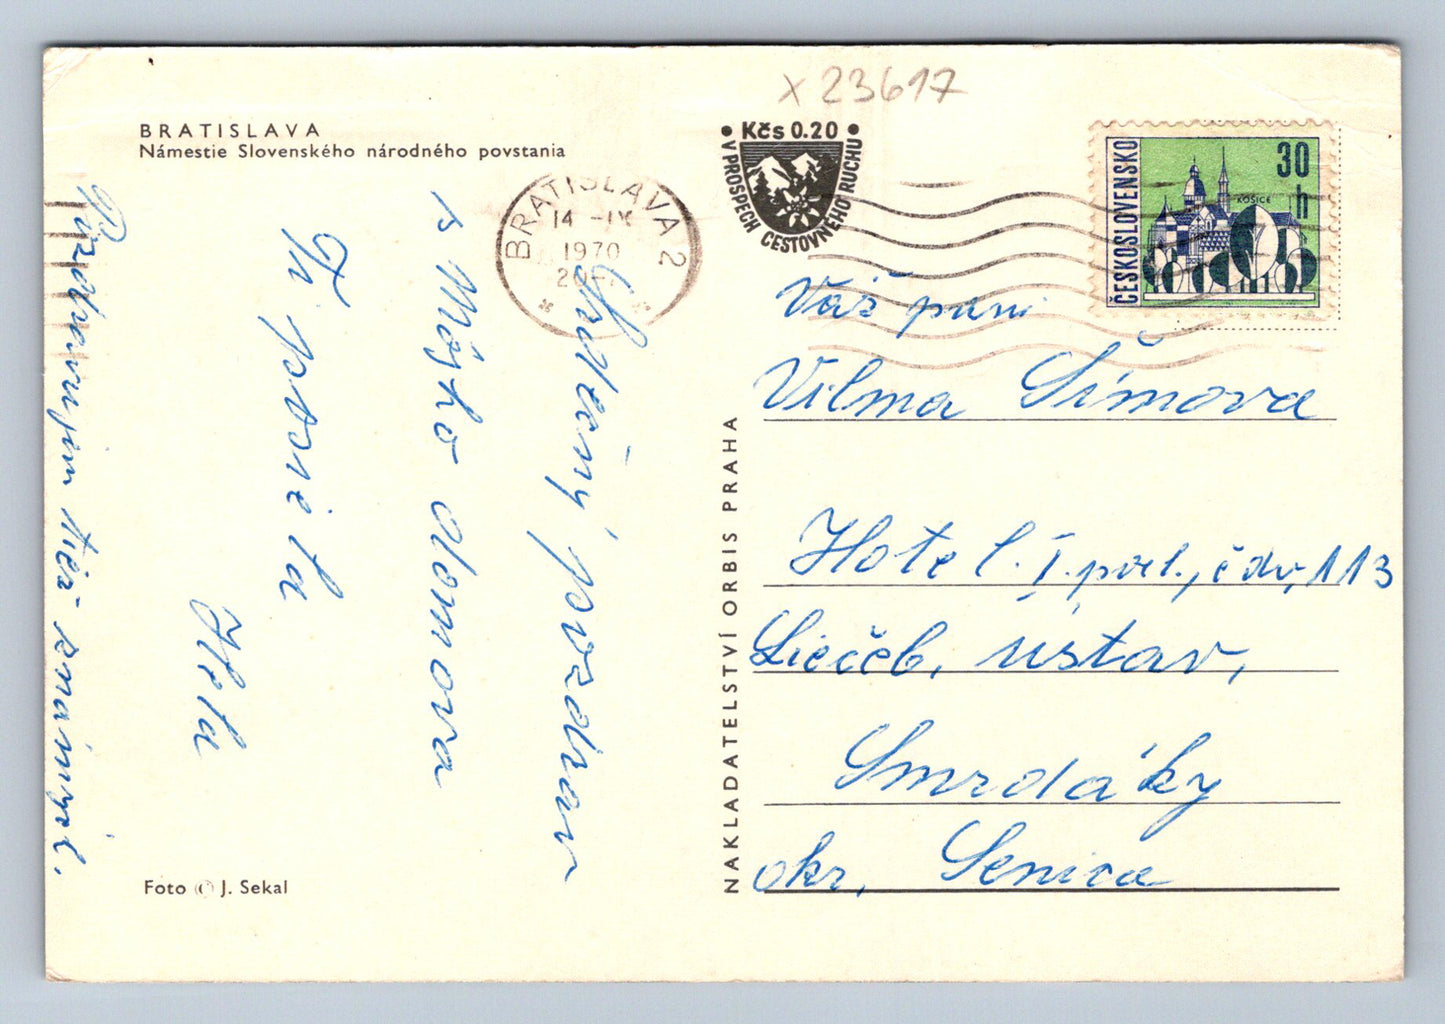 x 23617
BRATISLAVA
Námestie Slovenského národného povstania
• Kčs 0.20 •
V PROSPECH CESTOVNÉHO RUCHU
BRATISLAVA 2
14 -IX
1970
20-
ČESKOSLOVENSKO
30
h
KOŠICE
Srdečný pozdrav
s Môjho domova
Ti posiela
Hela
Pozdravujem tiež známych.
Váž pani
Vilma Šímova
Hotel. I. posch., č dv, 113
Liečeb, ústav,
Smrdáky
okr, Senica
NAKLADATELSTVÍ ORBIS PRAHA
Foto © J. Sekal